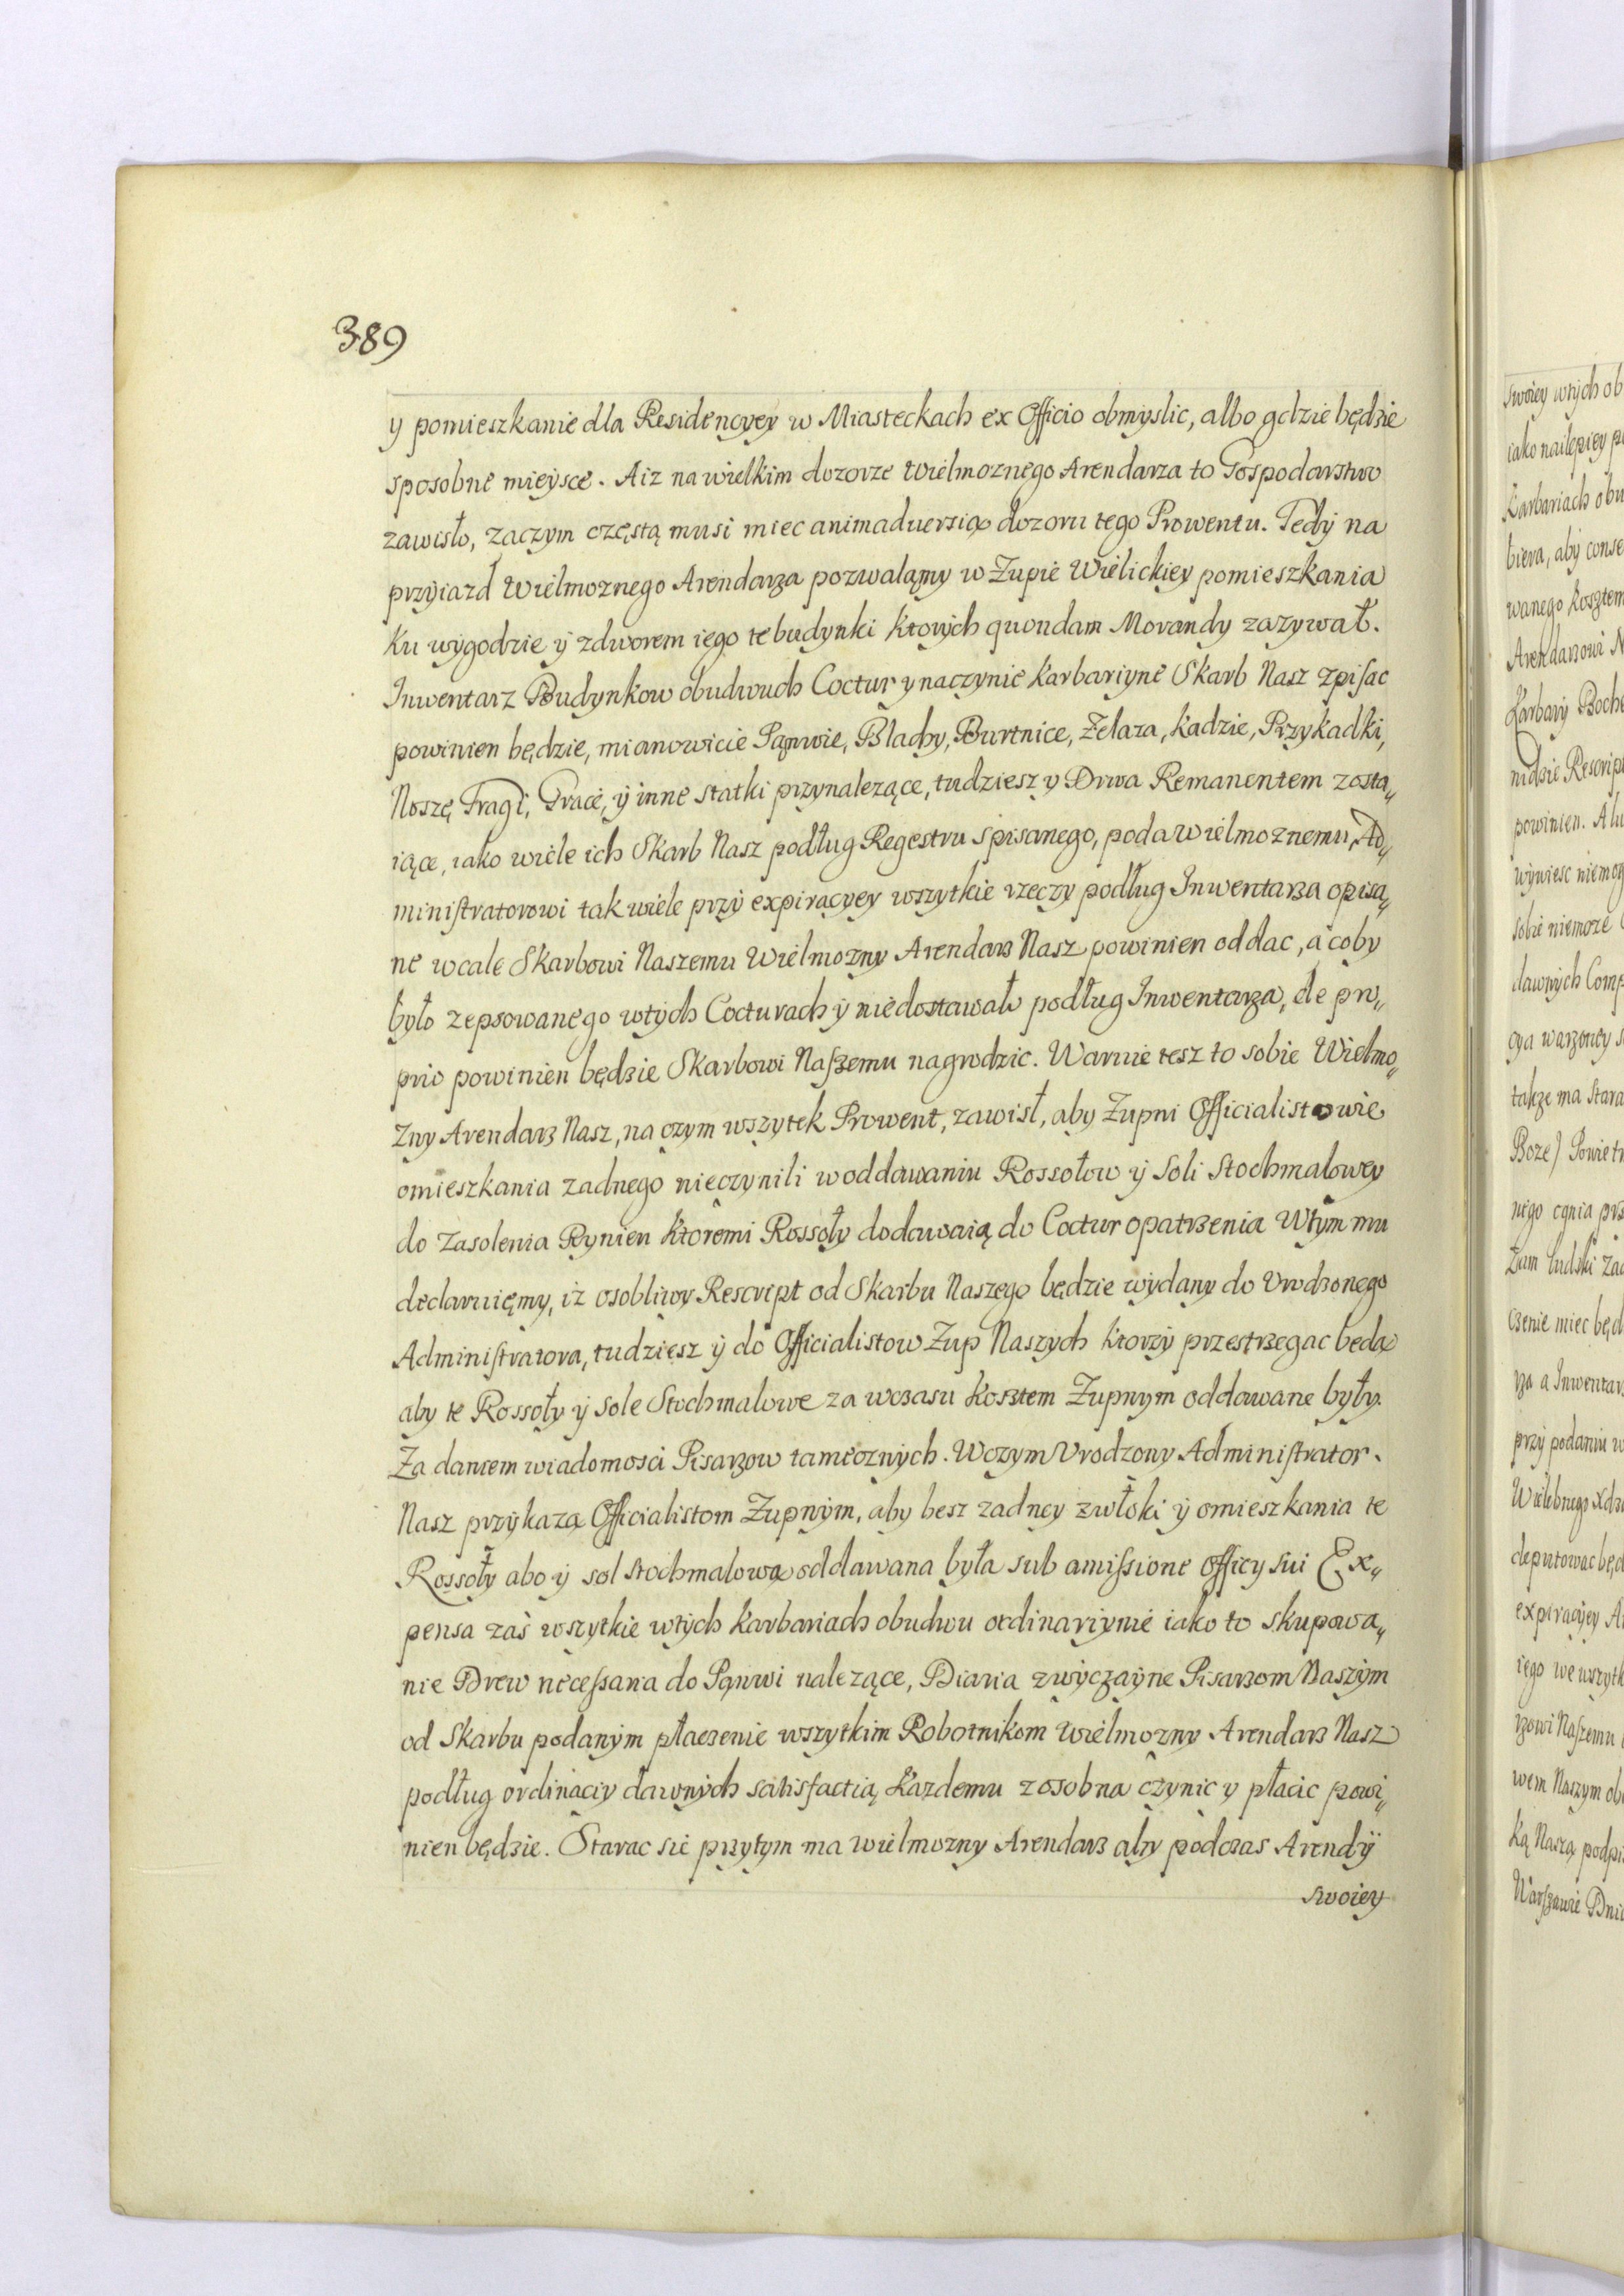 389
y pomieszkanie dla Residencyey w Miasteckach ex Officio obmyslic, albo gdzie będzie
sposobne mieysce. A iz na wielkim dozorze Wielmoznego Arendarza to Gospodarstwo
zawisło, zaczym częstą musi miec animaduersią dozoru tego Prowentu. Tedy na
przyiazd Wielmoznego Arendarza pozwalamy w Zupie Wielickiey pomieszkania
Ku wygodzie y zdworem iego te budynki ktorych quondam Morandy zazywał.
Inwentarz Budynkow obudwuch Coctur y naczynie Karbariyne Skarb Nasz zpisac
powinien będzie, mianowicie Panwie, Blachy, Burtnice, Zelaza, Kadzie, Przykadki,
Noszę Tragi, Grace, y inne statki przynalezące, tudziesz y Drwa Remanentem zosta„
iące, iako wiele ich Skarb Nasz podług Regestru spisanego, poda Wielmoznemu Ad„
ministratorowi tak wiele przy expiracyey wszytkie rzeczy podług Inwentarza opisa„
ne wcale Skarbowi Naszemu Wielmozny Arendarz Nasz powinien oddac, a coby
było zepsowanego wtych Cocturach y niedostawało podług Inwentarza, de pro„
prio powinien będzie Skarbowi Naszemu nagrodzic. Waruie tesz to sobie Wielmo„
Zny Arendarz Nasz, na czym wszytek Prowent, zawisł, aby Zupni Officialistowie
omieszkania zadnego nieczynili w oddawaniu Rossołow y Soli Stochmalowey
do Zasolenia Rynien ktoremi Rossoły dodawaią do Coctur opatrzenia Wtym mu
declaruięmy, iz osobliwy Rescript od Skarbu Naszego będzie wydany do Urodzonego
Administratora, tudziesz y do Officialistow Zup Naszych ktorzy przestrzegac bedą
aby te Rossoły y Sole Stochmalowe za wczasu kosztem Zupnym oddawane były.
Za daniem wiadomosci Pisarzow tamecznych. Wczym Urodzony Administrator
Nasz przykaza Officialistom Zupnym, aby besz zadney zwłoki y omieszkania te
Rossoły abo y sol stochmalowa oddawana była sub amissione officy sui Ex„
pensa zaś wszytkie wtych Karbariach obudwu ordinaryinie iako to skupowa„
nie Drew necessaria do Panwi nalezące, Diaria zwyczayne Pisarzom Naszym
od Skarbu podanym płaczenie wszytkim Robotnikom Wielmozny Arendarz Nasz
podług ordinaciy dawnych satisfactią Kazdemu z osobna czynic y płacic powi„
nien będzie. Starac sie przytym ma wielmozny Arendarz aby podczas Arendy
swoiey
swoiey wtych ob
iako nailepiey p
Karbariach obu
biera, aby conse
wanego kosztem
Arendarzowi N
Karbary Boche
nidzie Rescrip
powinien. A lu
wywiesc niemog
sobie niemoze
dawnych Comp
cya warzoney s
takze ma stara
Boze) Powietr
niego ognia prz
czenie miec będ
rza a Inwentarz
przy podaniu w
deputowac będ
expiracyey A
iego we wszytk
rzowi Naszemu
wem Naszym ob
ką Naszą podpi
Warszawie Dni